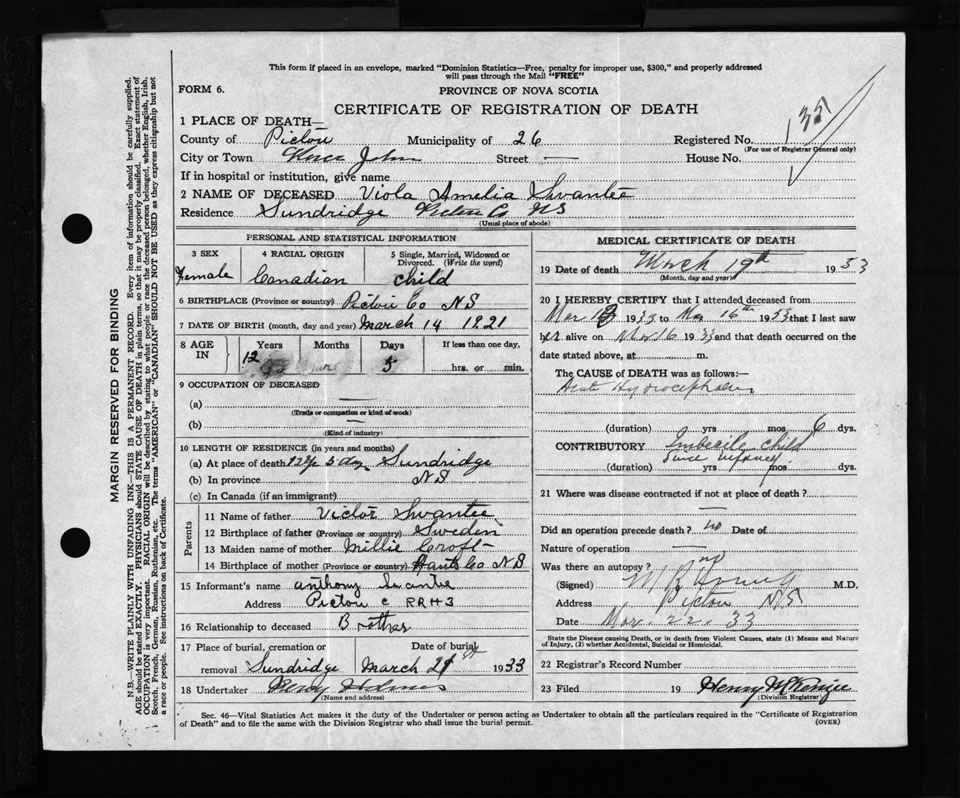 This form if placed in an envelope, marked "Dominion Statistics—Free, penalty for improper use, $300," and properly addressed
will pass through the Mail "FREE"
FORM 6.
PROVINCE OF NOVA SCOTIA
CERTIFICATE OF REGISTRATION OF DEATH
1 PLACE OF DEATH—
County of Pictou Municipality of 26 Registered No.
(For use of Registrar General only)
City or Town John Street — House No.
If in hospital or institution, give name
2 NAME OF DECEASED Viola Amelia Swantee
Residence Sundridge Co NS
(Usual place of abode)
PERSONAL AND STATISTICAL INFORMATION
3 SEX 4 RACIAL ORIGIN 5 Single, Married, Widowed or
Divorced. (Write the word)
Female Canadian child
6 BIRTHPLACE (Province or country) Pictou Co NS
7 DATE OF BIRTH (month, day and year) March 14 1921
8 AGE IN Years Months Days If less than one day,
12 5 hrs. or min.
9 OCCUPATION OF DECEASED
(a) —
(Trade or occupation or kind of work)
(b) —
(Kind of industry)
10 LENGTH OF RESIDENCE (in years and months)
(a) At place of death 12 yr 5 day Sundridge
(b) In province NS
(c) In Canada (if an immigrant)
Parents
11 Name of father Victor Swantee
12 Birthplace of father (Province or country) Sweden
13 Maiden name of mother Millie Croft
14 Birthplace of mother (Province or country) Hants Co NS
15 Informant's name Anthony Swantee
Address Pictou c RR#3
16 Relationship to deceased Brother
17 Place of burial, cremation or Date of burial
removal Sundridge March 21st 1933
18 Undertaker Holmes
(Name and address)
MEDICAL CERTIFICATE OF DEATH
19 Date of death March 19th 1933
(Month, day and year)
20 I HEREBY CERTIFY that I attended deceased from
Mar 1933 to Mar 16th 1933 that I last saw
her alive on Mar 16 1933 and that death occurred on the
date stated above, at m.
The CAUSE OF DEATH was as follows:—
Acute Hydrocephalus
(duration) yrs mos 6 dys.
CONTRIBUTORY Imbecile child
since infancy
(duration) yrs mos dys.
21 Where was disease contracted if not at place of death? —
Did an operation precede death? no Date of
Nature of operation —
Was there an autopsy? no
(Signed) M.D.
Address Pictou NS
Date Mar. 22. 33
State the Disease causing Death, or in death from Violent Causes, state (1) Means and Nature
of Injury, (2) whether Accidental, Suicidal or Homicidal.
22 Registrar's Record Number
23 Filed 19 Henry McKenzie
(Division Registrar)
Sec. 46—Vital Statistics Act makes it the duty of the Undertaker or person acting as Undertaker to obtain all the particulars required in the "Certificate of Registration
of Death" and to file the same with the Division Registrar who shall issue the burial permit. (OVER)
MARGIN RESERVED FOR BINDING
N.B.—WRITE PLAINLY WITH UNFADING INK—THIS IS A PERMANENT RECORD. Every item of information should be carefully supplied.
AGE should be stated EXACTLY. PHYSICIANS should STATE CAUSE OF DEATH in plain terms, so that it may be properly classified. Exact statement of
OCCUPATION is very important. RACIAL ORIGIN will be described by stating to what people or race the deceased person belonged, whether English, Irish,
Scotch, French, German, Russian, Ruthenian, etc. The terms "AMERICAN" or "CANADIAN" SHOULD NOT BE USED as they express citizenship but not
a race or people. See instructions on back of Certificate.